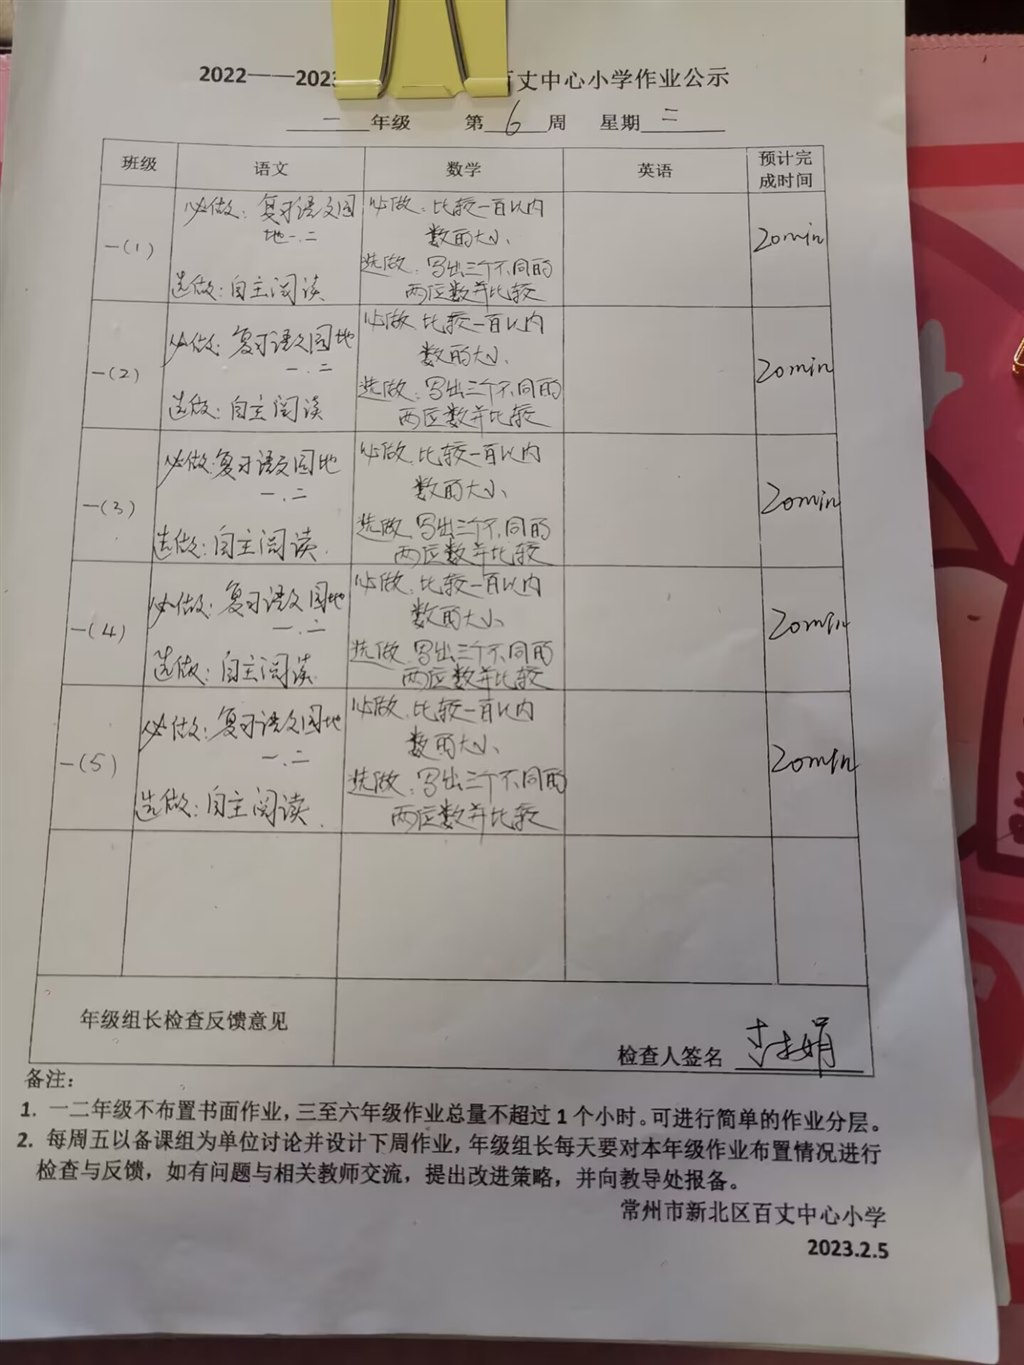 2022——2023 百丈中心小学作业公示
一 年级 第 6 周 星期 二
班级 语文 数学 英语 预计完
成时间
一(1) 必做：复习语文园
地一.二
选做：自主阅读
必做：比较一百以内
数的大小、
选做：写出三个不同的
两位数并比较
20min
一(2) 必做：复习语文园地
一.二
选做：自主阅读
必做.比较一百以内
数的大小、
选做：写出三个不同的
两位数并比较
20min
一(3) 必做.复习语文园地
一.二
选做：自主阅读.
必做.比较一百以内
数的大小、
选做.写出三个不同的
两位数并比较
20min
一(4) 必做：复习语文园地
一.二
选做：自主阅读.
必做.比较一百以内
数的大小、
选做.写出三个不同的
两位数并比较
20min
一(5) 必做：复习语文园地
一.二
选做：自主阅读.
必做.比较一百以内
数的大小、
选做：写出三个不同的
两位数并比较
20min
年级组长检查反馈意见
检查人签名
备注：
1. 一二年级不布置书面作业，三至六年级作业总量不超过 1 个小时。可进行简单的作业分层。
2. 每周五以备课组为单位讨论并设计下周作业，年级组长每天要对本年级作业布置情况进行
检查与反馈，如有问题与相关教师交流，提出改进策略，并向教导处报备。
常州市新北区百丈中心小学
2023.2.5